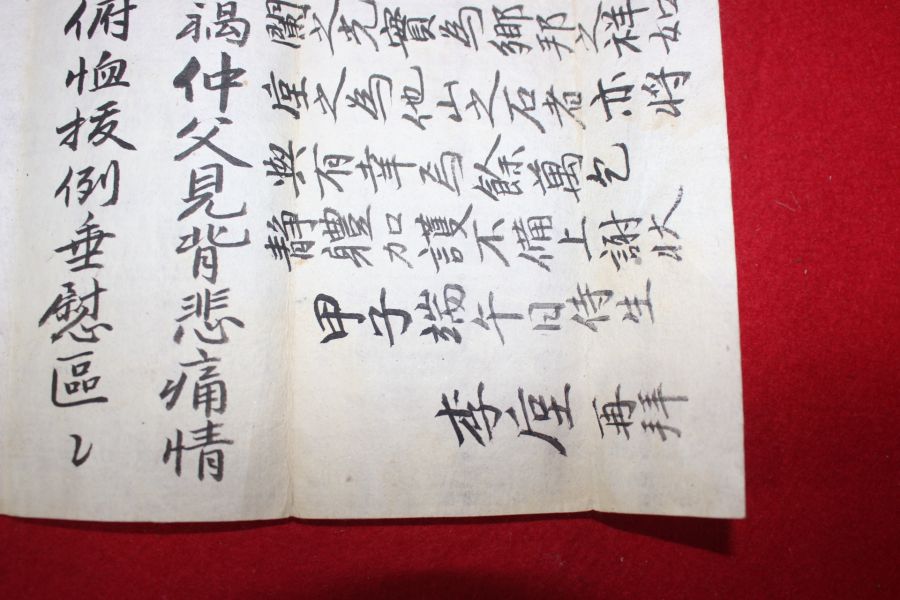 禍仲父見背悲痛情
俯恤援例垂慰區〻
之光實為鄉邦之祥如
之為他山之石者亦將
與有幸焉餘萬乞
靜體加護不備上謝狀
甲子端午日侍生
李 再拜